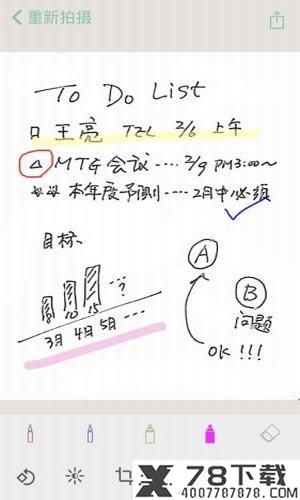 重新拍摄
To Do List
口 王亮 TEL 2/6 上午
△ MTG 会议 ---- 2/9 PM3:00~
☆☆ 本年度予測 ---- 2月中必须
目标
8 10 15 --- ?
3月 4月 5月 ---
A
B
问题
OK!!!
78下载
4007787878.COM